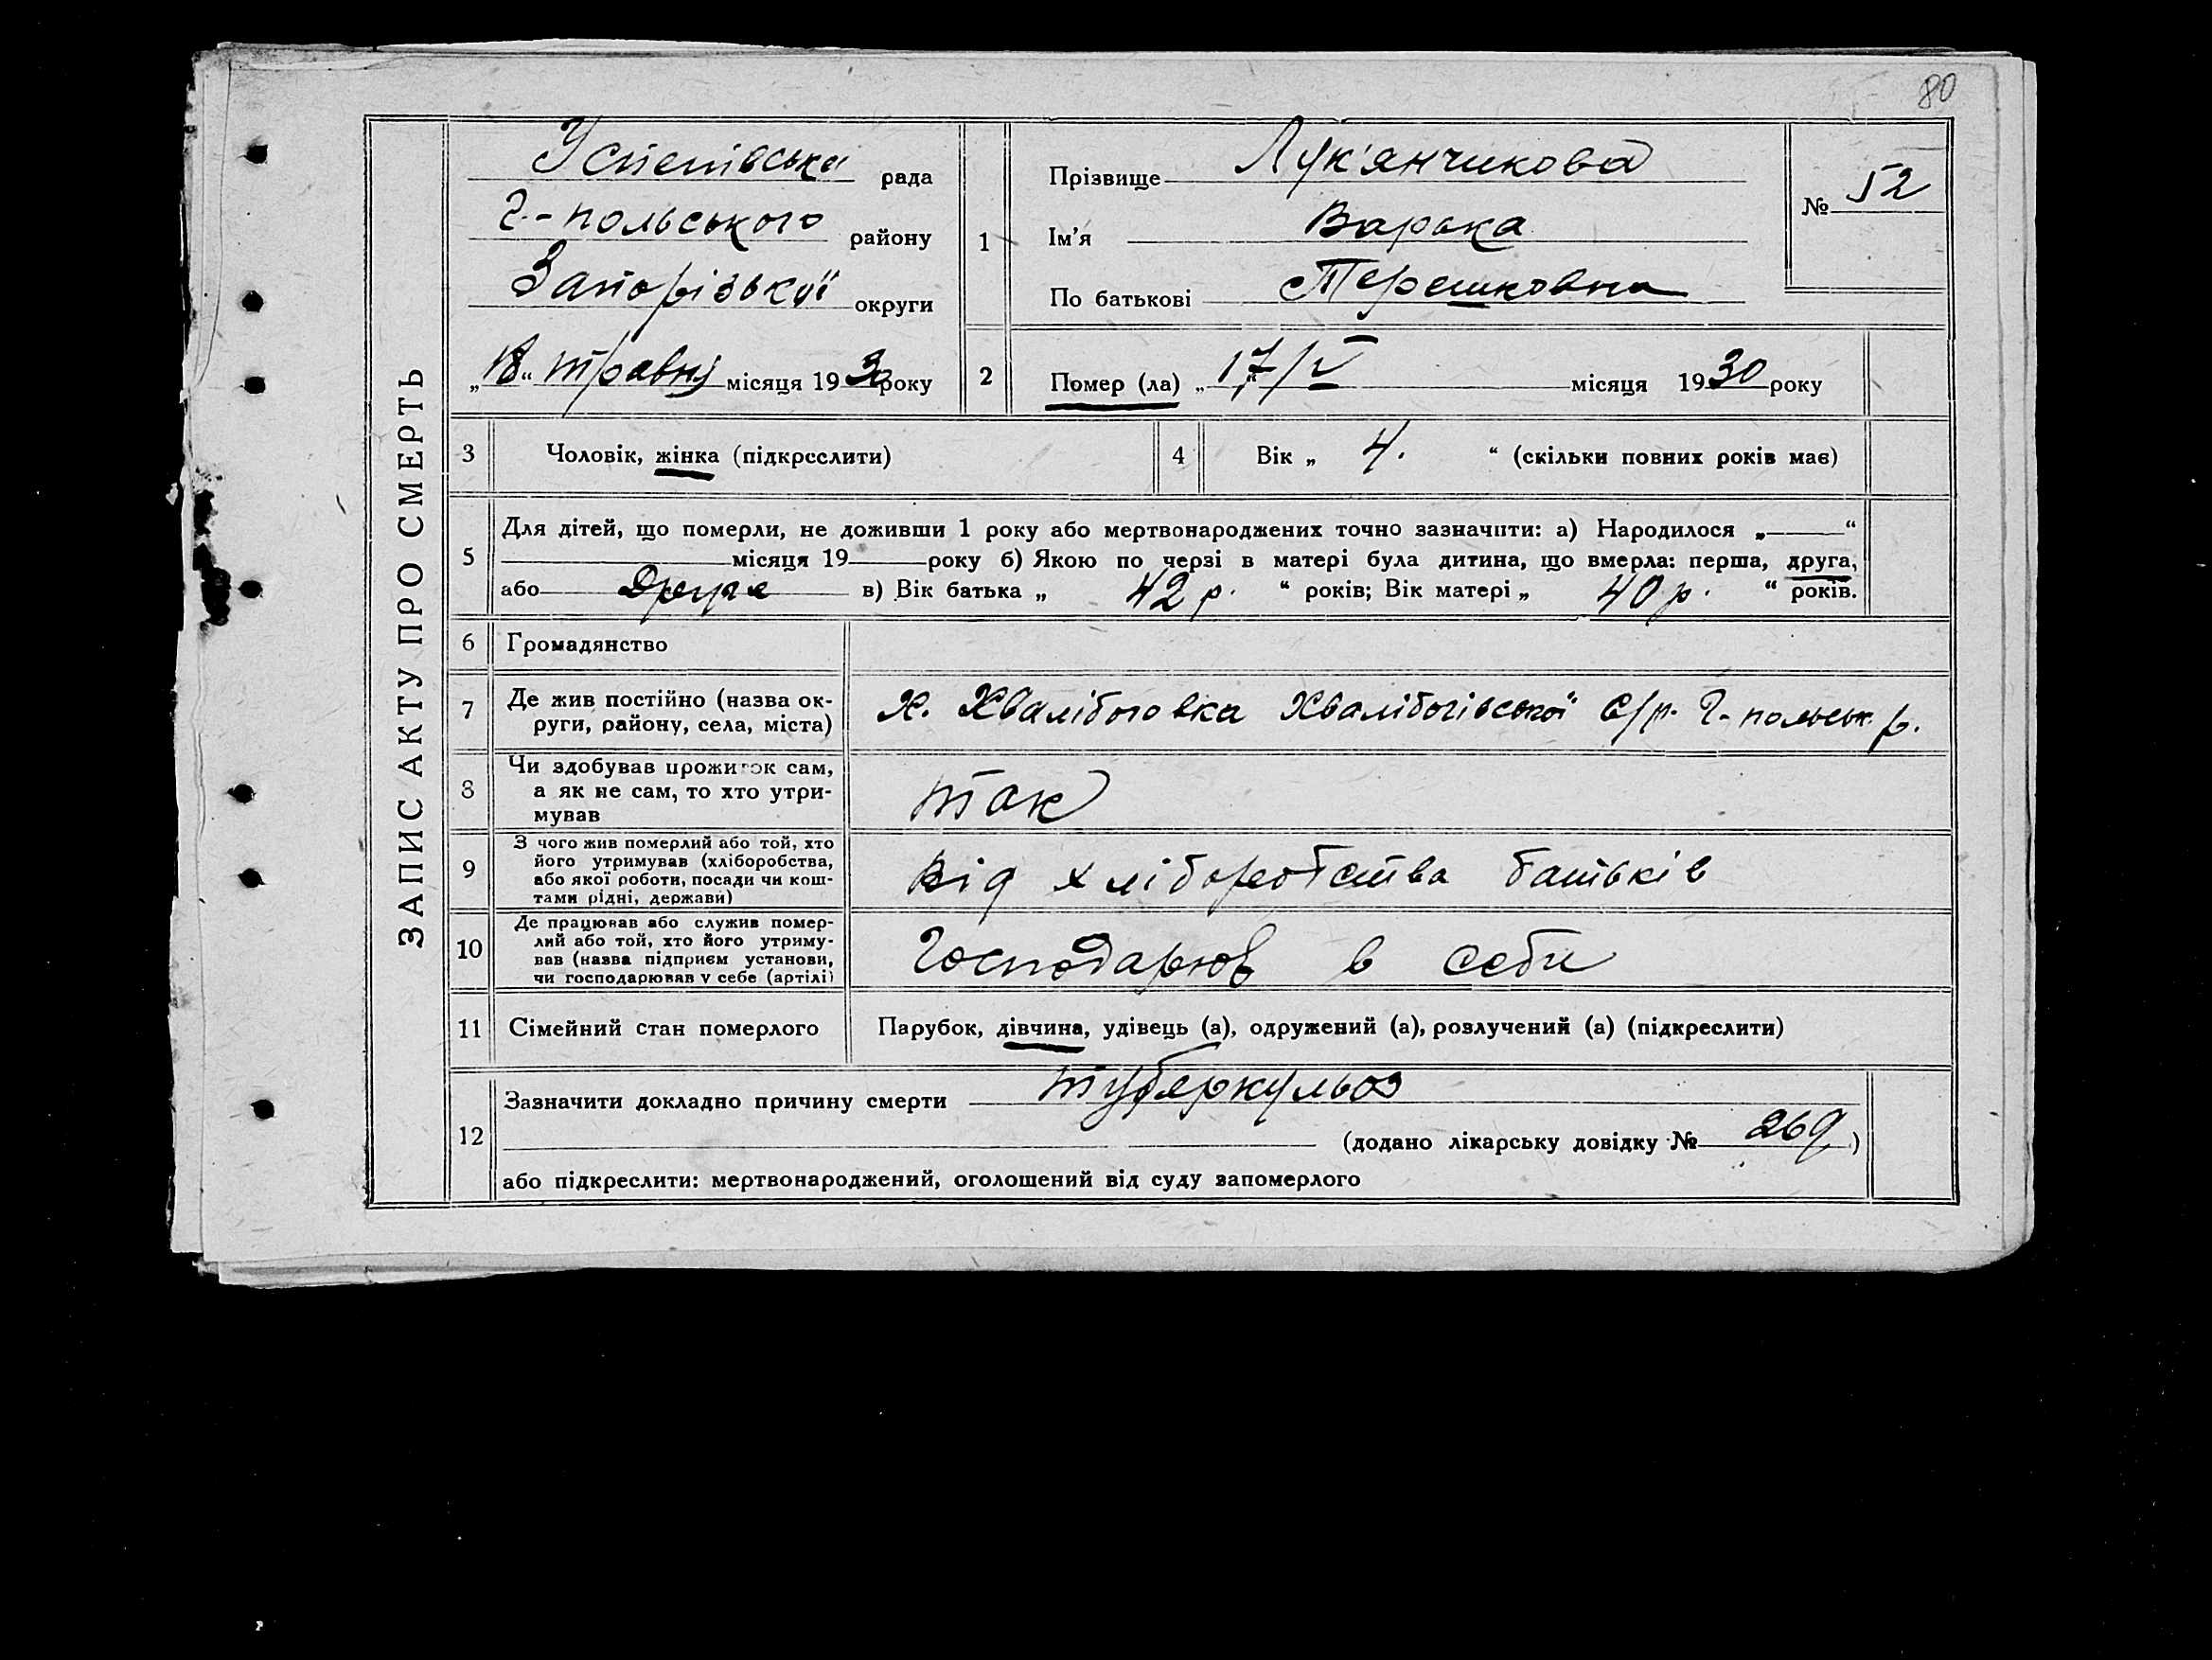 80
ЗАПИС АКТУ ПРО СМЕРТЬ
Успенівська рада
Г.-польського району
Запорізької округи
„18“ травня місяця 1930 року
1
Прізвище Лук'янчикова
Ім'я Варька
По батькові Терешковна
№ 52
2
Помер (ла) „17/V місяця 1930 року
3
Чоловік, жінка (підкреслити)
4
Вік „ 4. “ (скільки повних років має)
5
Для дітей, що померли, не доживши 1 року або мертвонароджених точно зазначити: а) Народилося „ “
місяця 19 року б) Якою по черзі в матері була дитина, що вмерла: перша, друга,
або друга в) Вік батька „ 42 р. “ років; Вік матері „ 40 р. “ років.
6
Громадянство
7
Де жив постійно (назва ок-
руги, району, села, міста)
Х. Хвалібоговка Хвалібогівської с/р. Г-польськ. р.
8
Чи здобував прожиток сам,
а як не сам, то хто утри-
мував
так
9
З чого жив померлий або той, хто
його утримував (хліборобства,
або якої роботи, посади чи кош-
тами рідні, держави)
Від хліборобства батьків
10
Де працював або служив помер-
лий або той, хто його утриму-
вав (назва підприєм установи,
чи господарював у себе (артілі)
Господарюв в себи
11
Сімейний стан померлого
Парубок, дівчина, удівець (а), одружений (а), розлучений (а) (підкреслити)
12
Зазначити докладно причину смерти туберкульоз
(додано лікарську довідку № 269)
або підкреслити: мертвонароджений, оголошений від суду запомерлого